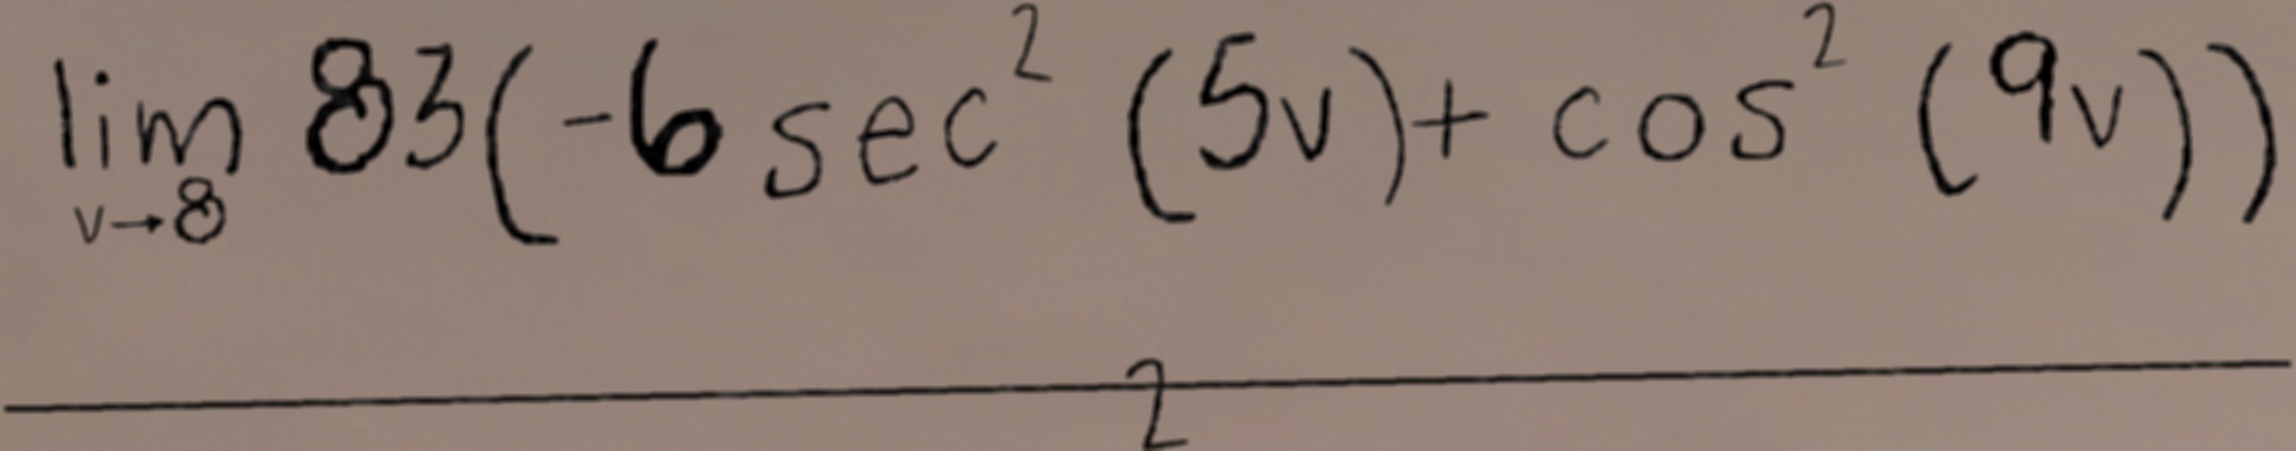 lim 83(-6 sec² (5v)+ cos² (9v))
v→8
2